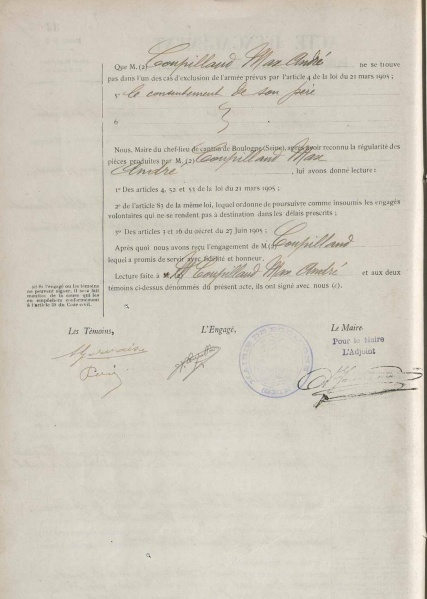 Que M. (2) Coupilland Max André ne se trouve
pas dans l'un des cas d'exclusion de l'armée prévus par l'article 4 de la loi du 21 mars 1905 ;
5° le consentement de son père
6°
Nous, Maire du chef-lieu de canton de Boulogne (Seine), après avoir reconnu la régularité des
pièces produites par M. (2) Coupilland Max
André, lui avons donné lecture :
1° Des articles 4, 52 et 53 de la loi du 21 mars 1905 ;
2° de l'article 83 de la même loi, lequel ordonne de poursuivre comme insoumis les engagés
volontaires qui ne se rendent pas à destination dans les délais prescrits ;
3° Des articles 3 et 16 du décret du 27 Juin 1905 ;
Après quoi nous avons reçu l'engagement de M. (2) Coupilland
lequel a promis de servir avec fidélité et honneur.
Lecture faite à M. Coupilland Max André et aux deux
témoins ci-dessus dénommés du présent acte, ils ont signé avec nous (c).
(c) Si l'engagé ou les témoins
ne peuvent signer, il sera fait
mention de la cause qui les
en empêchera conformément
à l'article 39 du Code civil.
Les Témoins,
L'Engagé,
Le Maire
Pour le Maire
L'Adjoint